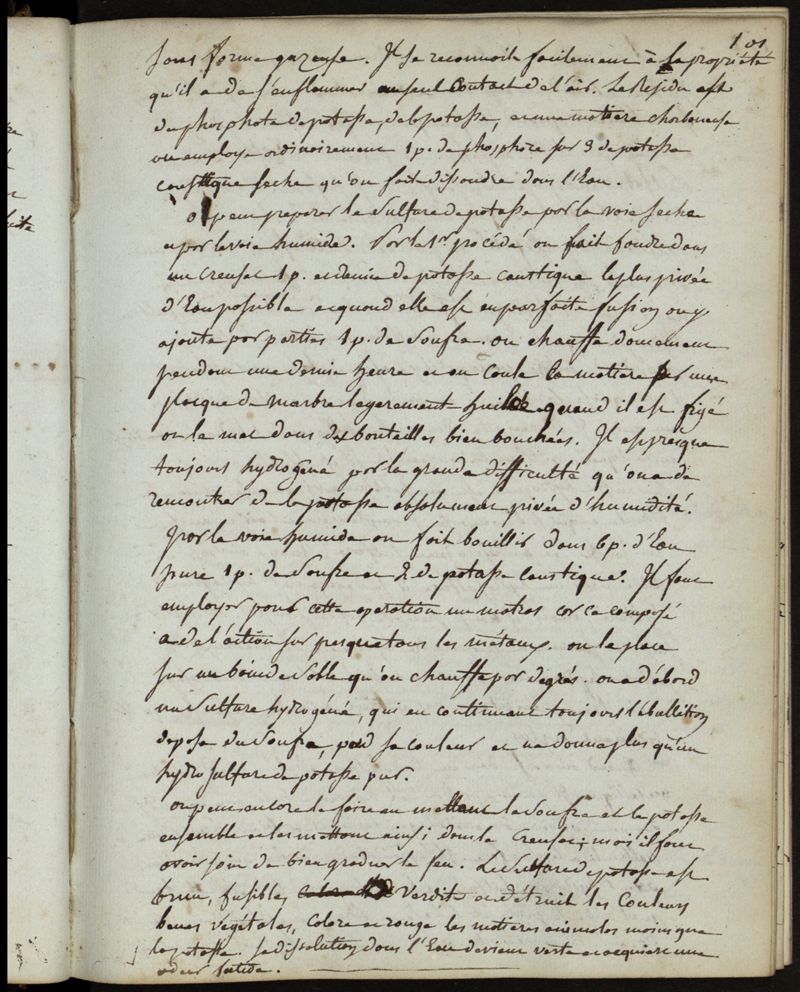 101
sous forme gazeuse. Il se reconnoit facilement à sa propriété
qu'il a de s'enflammer au seul Contact de l'air. Le Residu est
du phosphate de potasse, de la potasse, et une matiere charboneuse
on employe ordinairement 1 p. de phosphore sur 3 de potasse
caustique seche qu'on fait dissoudre dans l'Eau.
on peut preparer le Sulfure de potasse par la voie seche
et par la voie humide. Par le 1er procédé on fait fondre dans
un Creuset 1 p. et demie de potasse caustique la plus privée
d'Eau possible et quand elle est en parfaite fusion on y
ajoute par parties 1 p. de Soufre. on chauffe doucement
pendant une demie heure et on coule la matiere sur une
placque de marbre legerement huilée quand il est figé
on le met dans des bouteilles bien bouchées. Il est presque
toujours hydrogéné par la grande difficulté qu'on a de
rencontrer de la potasse absolument privée d'humidité.
Par la voie humide on fait bouillir dans 6 p. d'Eau
pure 1 p. de Soufre et 2 de potasse caustique. Il faut
employer pour cette operation un matras car ce composé
a de l'action sur presque tous les métaux. on le place
sur un bain de Sable qu'on chauffe par degrés. on a d'abord
un Sulfure hydrogéné, qui en continuant toujours l'ebullition
depose du Soufre, perd sa couleur et ne donne plus qu'un
hydro sulfure de potasse pur.
on peut encore le faire en mettant le Soufre et la potasse
ensemble et les mettant ainsi dans le Creuset; mais il faut
avoir soin de bien graduer le feu. Le Sulfure de potasse est
brun, fusible, Verdit et détruit les Couleurs
bleues végétales, colore en rouge les matieres animales moins que
la potasse. Sa dissolution dans l'Eau devient verte et acquiert une
odeur fetide.